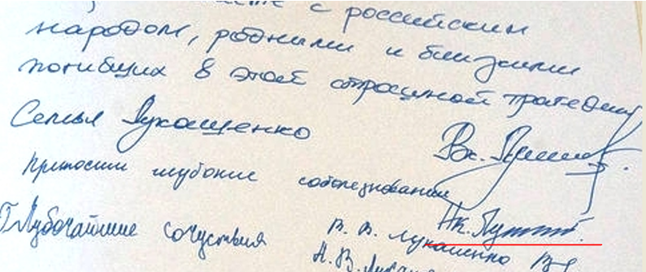 с российским
народом, родными и близкими
погибших в этой страшной трагедии
Семья Лукашенко
Приносим глубокие соболезнования
Глубочайшие сочувствия
В. В. Лукашенко